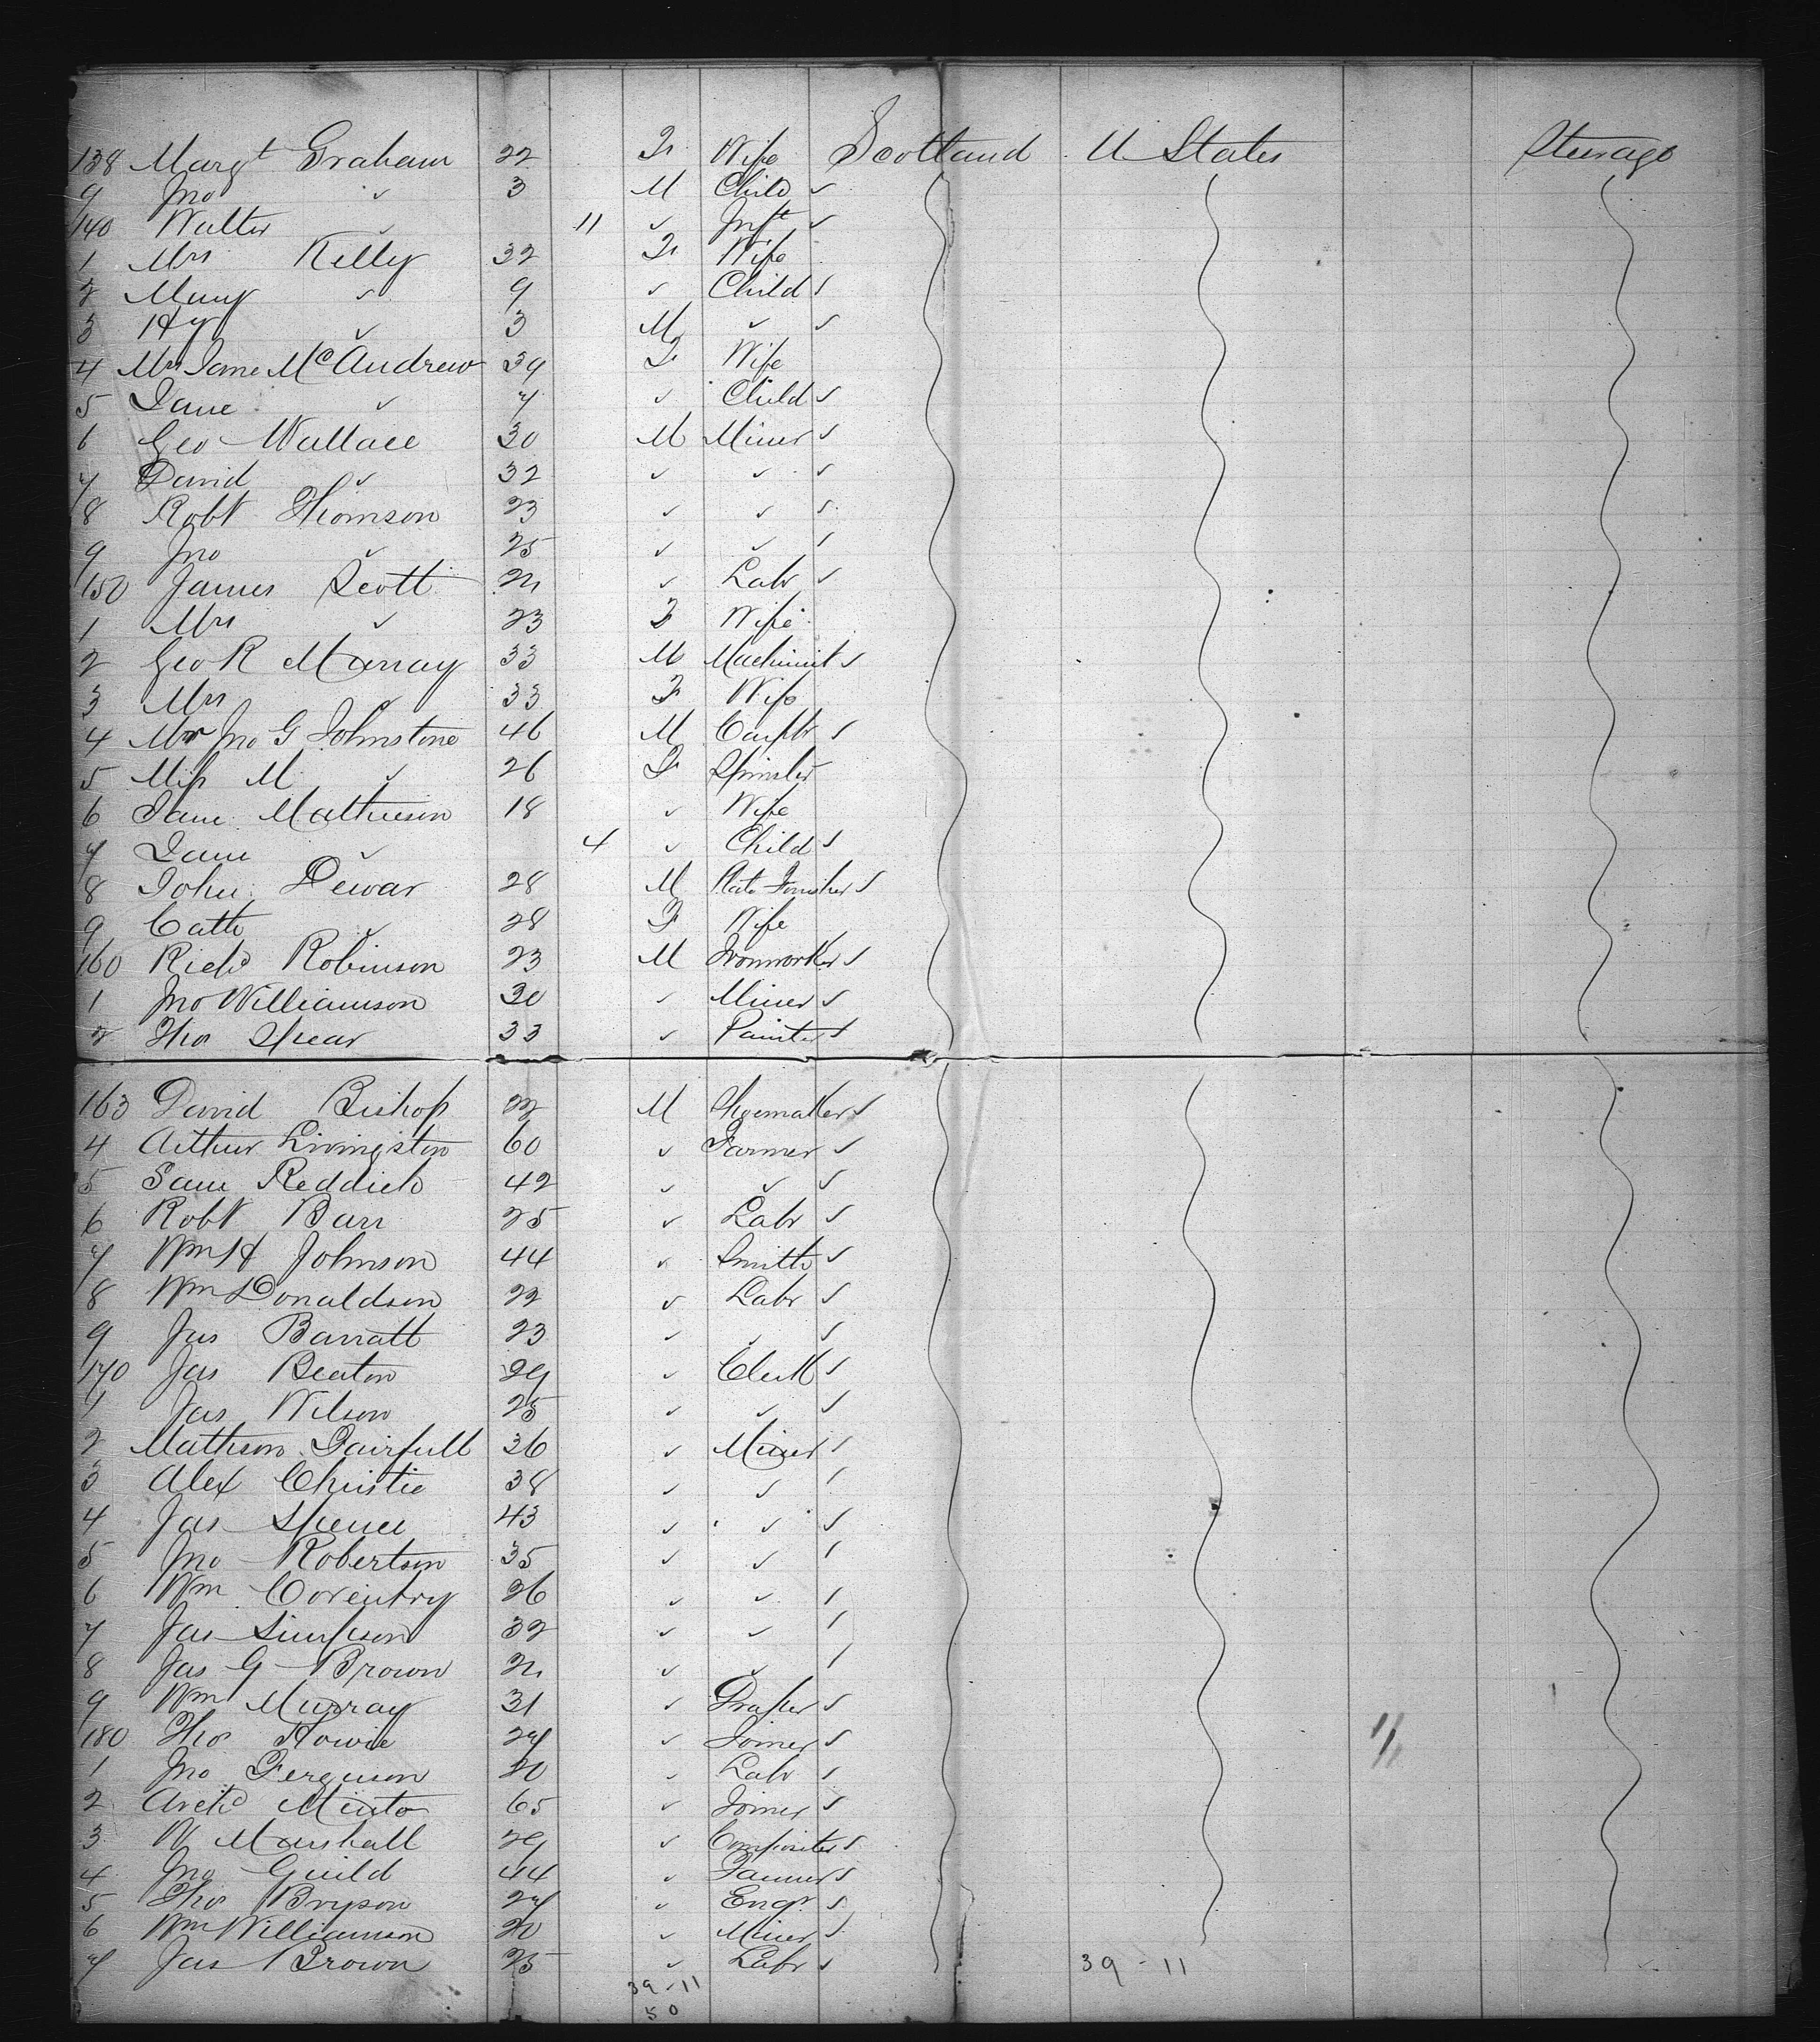 138 Margt Graham 22 F Wife Scotland U States Steerage
9 Jno ✓ 3 M Child ✓
140 Walter ✓ 11 ✓ Inft ✓
1 Mrs Kelly 32 F Wife
2 Mary ✓ 9 ✓ Child ✓
3 Hy ✓ 3 M ✓ ✓
4 Mrs Jane McAndrew 39 F Wife
5 Jane ✓ 7 ✓ Child ✓
6 Geo Wallace 30 M Miner ✓
7 David ✓ 32 ✓ ✓ ✓
8 Robt Thomson 23 ✓ ✓ ✓
9 Jno ✓ 25 ✓ ✓ ✓
150 James Scott 21 ✓ Labr ✓
1 Mrs ✓ 23 F Wife
2 Geo R Murray 33 M Machinist ✓
3 Mrs ✓ 33 F Wife
4 Mr Jno G Johnstone 46 M Carptr ✓
5 Miss M ✓ 26 F Spinster
6 Jane Mathieson 18 ✓ Wife
7 Jane ✓ 4 ✓ Child ✓
8 John Dewar 28 M Plate Finisher ✓
9 Cath ✓ 28 F Wife
160 Richd Robinson 23 M Ironworker ✓
1 Jno Williamson 30 ✓ Miner ✓
2 Thos Spear 33 ✓ Painter ✓
163 David Bishop 22 M Shoemaker ✓
4 Arthur Livingston 60 ✓ Farmer ✓
5 Sam Reddich 42 ✓ ✓ ✓
6 Robt Barr 25 ✓ Labr ✓
7 Wm H Johnson 44 ✓ Smith ✓
8 Wm Donaldson 22 ✓ Labr ✓
9 Jas Barratt 23 ✓ ✓ ✓
170 Jas Beaton 29 ✓ Clerk ✓
1 Jas Wilson 25 ✓ ✓ ✓
2 Mathison Fairfull 36 ✓ Miner ✓
3 Alex Christie 38 ✓ ✓ ✓
4 Jas Spence 43 ✓ ✓ ✓
5 Jno Robertson 35 ✓ ✓ ✓
6 Wm Coventry 26 ✓ ✓ ✓
7 Jas Simpson 32 ✓ ✓ ✓
8 Jas G Brown 21 ✓ ✓ ✓
9 Wm Murray 31 ✓ Draper ✓
180 Thos Howie 27 ✓ Joiner ✓
1 Jno Ferguson 20 ✓ Labr ✓
2 Archd Minto 65 ✓ Joiner ✓
3 W Marshall 29 ✓ Compositer ✓
4 Jno Guild 44 ✓ Farmer ✓
5 Thos Bryson 27 ✓ Engr ✓
6 Wm Williamson 20 ✓ Miner ✓
7 Jas Brown 25 ✓ Labr ✓
39-11 39-11
50